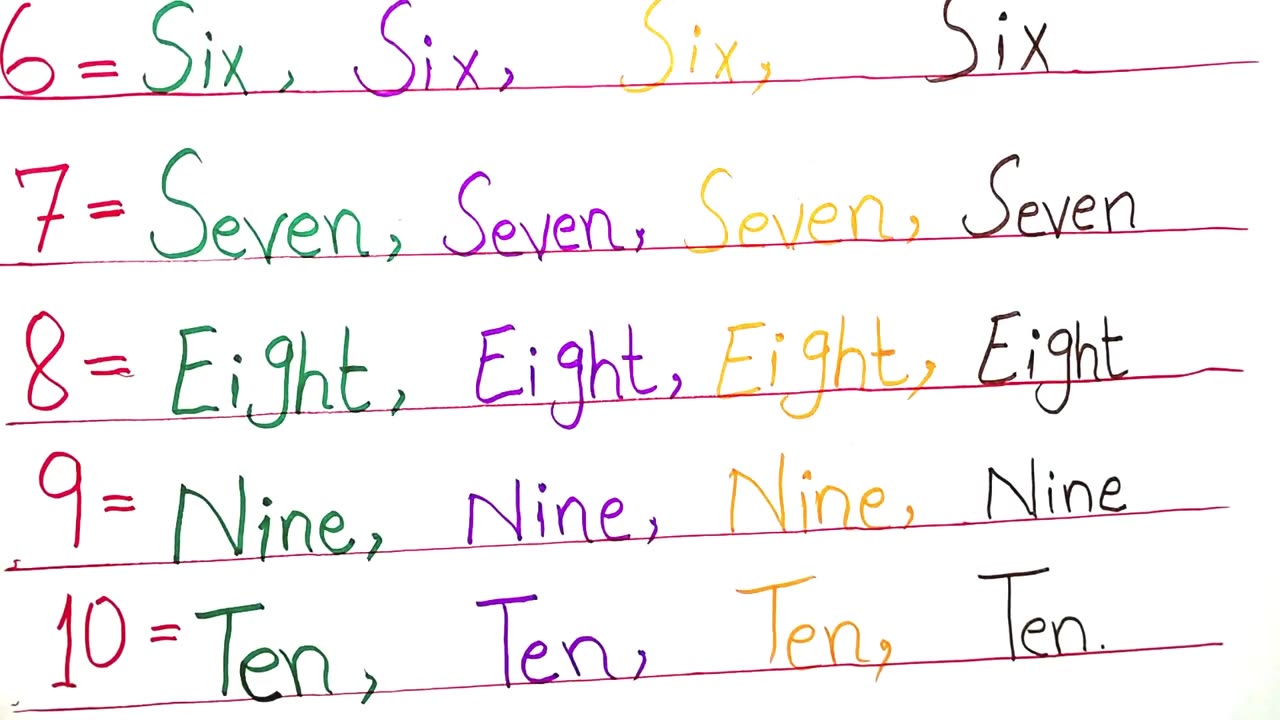 6 = Six, Six, Six, Six
7 = Seven, Seven, Seven, Seven
8 = Eight, Eight, Eight, Eight
9 = Nine, Nine, Nine, Nine
10 = Ten, Ten, Ten, Ten.